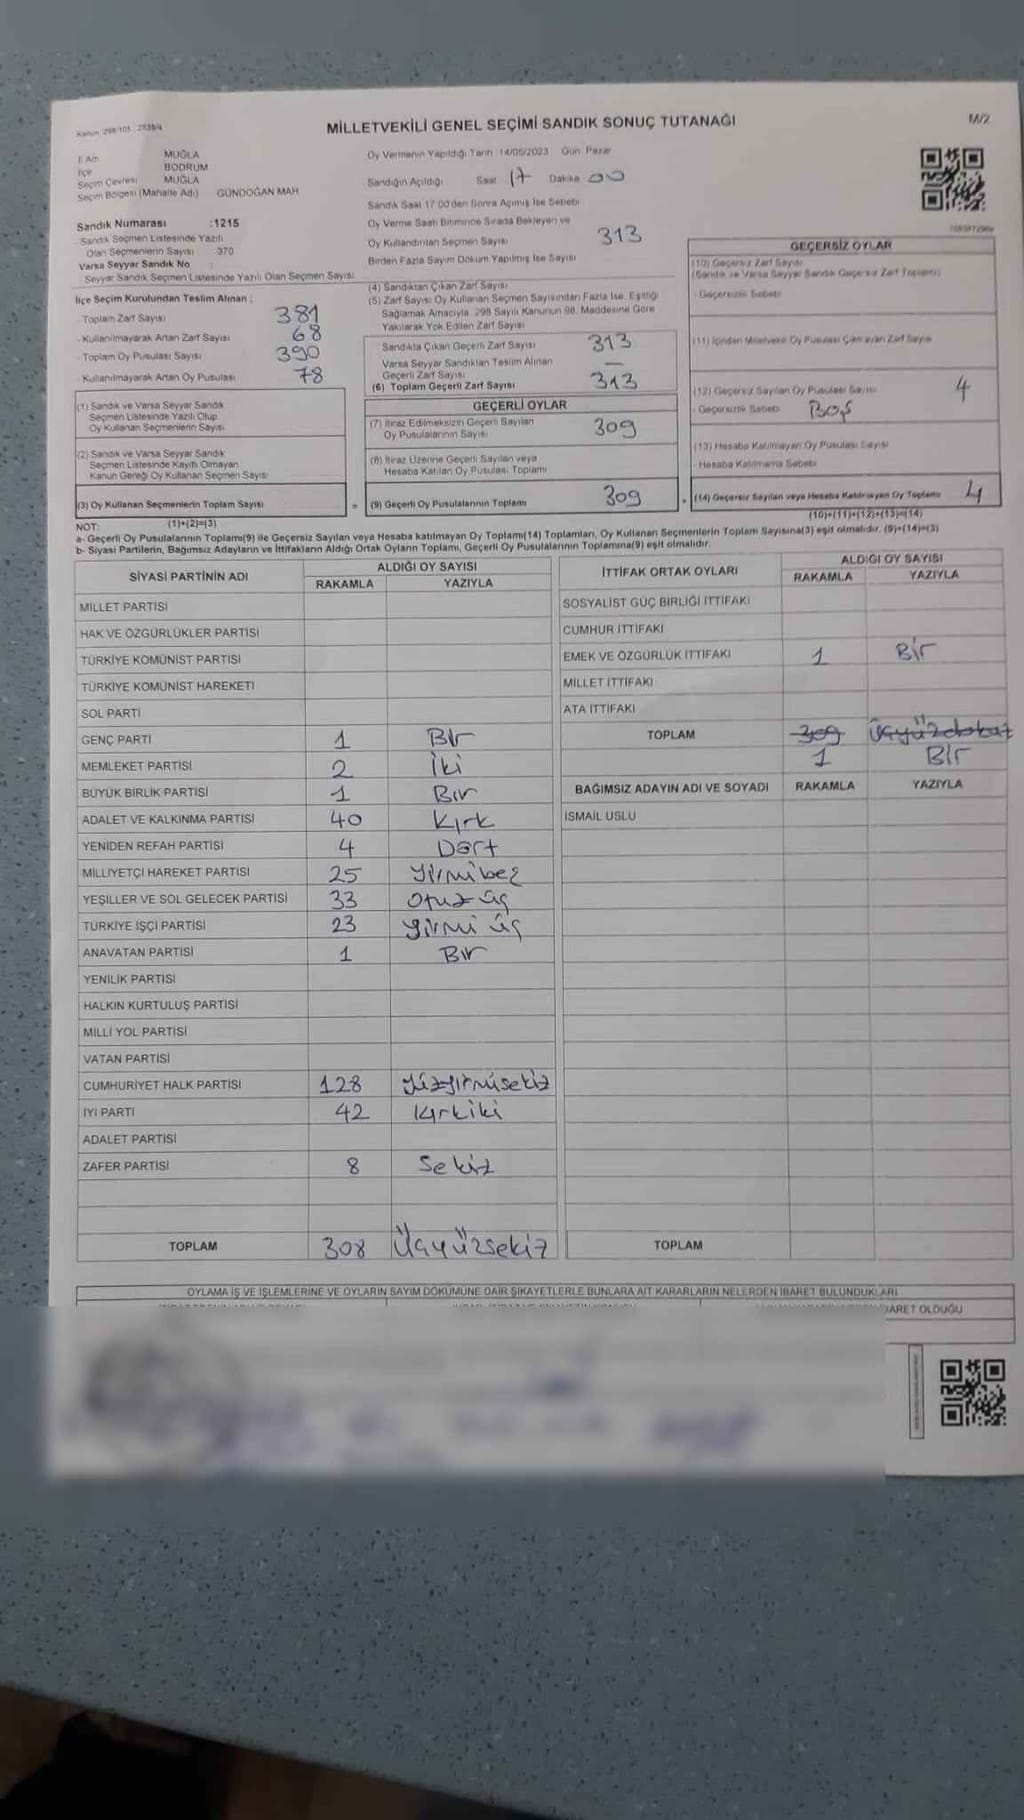 Kanun: 298/105 , 2839/4
MİLLETVEKİLİ GENEL SEÇİMİ SANDIK SONUÇ TUTANAĞI
M/2
İl Adı MUĞLA
İlçe BODRUM
Seçim Çevresi MUĞLA
Seçim Bölgesi (Mahalle Adı) GÜNDOĞAN MAH
Oy Vermenin Yapıldığı Tarih :14/05/2023 Gün: Pazar
Sandığın Açıldığı Saat 17 Dakika 00
Sandık Saat 17:00'den Sonra Açılmış İse Sebebi
Sandık Numarası :1215
Sandık Seçmen Listesinde Yazılı
Olan Seçmenlerin Sayısı 370
Varsa Seyyar Sandık No
Seyyar Sandık Seçmen Listesinde Yazılı Olan Seçmen Sayısı
Oy Verme Saati Bitiminde Sırada Bekleyen ve
Oy Kullandırılan Seçmen Sayısı 313
Birden Fazla Sayım Döküm Yapılmış İse Sayısı
İlçe Seçim Kurulundan Teslim Alınan :
- Toplam Zarf Sayısı 381
- Kullanılmayarak Artan Zarf Sayısı 68
- Toplam Oy Pusulası Sayısı 390
- Kullanılmayarak Artan Oy Pusulası 78
(4) Sandıktan Çıkan Zarf Sayısı
(5) Zarf Sayısı Oy Kullanan Seçmen Sayısından Fazla İse, Eşitliği
Sağlamak Amacıyla, 298 Sayılı Kanunun 98. Maddesine Göre
Yakılarak Yok Edilen Zarf Sayısı
Sandıkta Çıkan Geçerli Zarf Sayısı 313
Varsa Seyyar Sandıktan Teslim Alınan
Geçerli Zarf Sayısı —
(6) Toplam Geçerli Zarf Sayısı 313
(1) Sandık ve Varsa Seyyar Sandık
Seçmen Listesinde Yazılı Olup
Oy Kullanan Seçmenlerin Sayısı
(2) Sandık ve Varsa Seyyar Sandık
Seçmen Listesinde Kayıtlı Olmayan
Kanun Gereği Oy Kullanan Seçmen Sayısı
(3) Oy Kullanan Seçmenlerin Toplam Sayısı
(1)+(2)=(3)
GEÇERLİ OYLAR
(7) İtiraz Edilmeksizin Geçerli Sayılan
Oy Pusulalarının Sayısı 309
(8) İtiraz Üzerine Geçerli Sayılan veya
Hesaba Katılan Oy Pusulası Toplamı
= (9) Geçerli Oy Pusulalarının Toplamı 309
GEÇERSİZ OYLAR
(10) Geçersiz Zarf Sayısı
(Sandık ve Varsa Seyyar Sandık Geçersiz Zarf Toplamı)
- Geçersizlik Sebebi
(11) İçinden Milletvekili Oy Pusulası Çıkmayan Zarf Sayısı
(12) Geçersiz Sayılan Oy Pusulası Sayısı 4
- Geçersizlik Sebebi BOŞ
(13) Hesaba Katılmayan Oy Pusulası Sayısı
- Hesaba Katılmama Sebebi
+ (14) Geçersiz Sayılan veya Hesaba Katılmayan Oy Toplamı 4
(10)+(11)+(12)+(13)=(14)
NOT:
a- Geçerli Oy Pusulalarının Toplamı(9) ile Geçersiz Sayılan veya Hesaba katılmayan Oy Toplamı(14) Toplamları, Oy Kullanan Seçmenlerin Toplam Sayısına(3) eşit olmalıdır. (9)+(14)=(3)
b- Siyasi Partilerin, Bağımsız Adayların ve İttifakların Aldığı Ortak Oyların Toplamı, Geçerli Oy Pusulalarının Toplamına(9) eşit olmalıdır.
SİYASİ PARTİNİN ADI ALDIĞI OY SAYISI
RAKAMLA YAZIYLA
MİLLET PARTİSİ
HAK VE ÖZGÜRLÜKLER PARTİSİ
TÜRKİYE KOMÜNİST PARTİSİ
TÜRKİYE KOMÜNİST HAREKETİ
SOL PARTİ
GENÇ PARTİ 1 Bir
MEMLEKET PARTİSİ 2 İki
BÜYÜK BİRLİK PARTİSİ 1 Bir
ADALET VE KALKINMA PARTİSİ 40 Kırk
YENİDEN REFAH PARTİSİ 4 Dört
MİLLİYETÇİ HAREKET PARTİSİ 25 Yirmibeş
YEŞİLLER VE SOL GELECEK PARTİSİ 33 Otuz üç
TÜRKİYE İŞÇİ PARTİSİ 23 Yirmi üç
ANAVATAN PARTİSİ 1 Bir
YENİLİK PARTİSİ
HALKIN KURTULUŞ PARTİSİ
MİLLİ YOL PARTİSİ
VATAN PARTİSİ
CUMHURİYET HALK PARTİSİ 128 Yüzyirmisekiz
İYİ PARTİ 42 Kırkiki
ADALET PARTİSİ
ZAFER PARTİSİ 8 Sekiz
TOPLAM 308 Üçyüzsekiz
İTTİFAK ORTAK OYLARI ALDIĞI OY SAYISI
RAKAMLA YAZIYLA
SOSYALİST GÜÇ BİRLİĞİ İTTİFAKI
CUMHUR İTTİFAKI
EMEK VE ÖZGÜRLÜK İTTİFAKI 1 Bir
MİLLET İTTİFAKI
ATA İTTİFAKI
TOPLAM 309 Üçyüzdokuz
1 Bir
BAĞIMSIZ ADAYIN ADI VE SOYADI RAKAMLA YAZIYLA
İSMAİL USLU
TOPLAM
OYLAMA İŞ VE İŞLEMLERİNE VE OYLARIN SAYIM DÖKÜMÜNE DAİR ŞİKAYETLERLE BUNLARA AİT KARARLARIN NELERDEN İBARET BULUNDUKLARI
BARET OLDUĞU